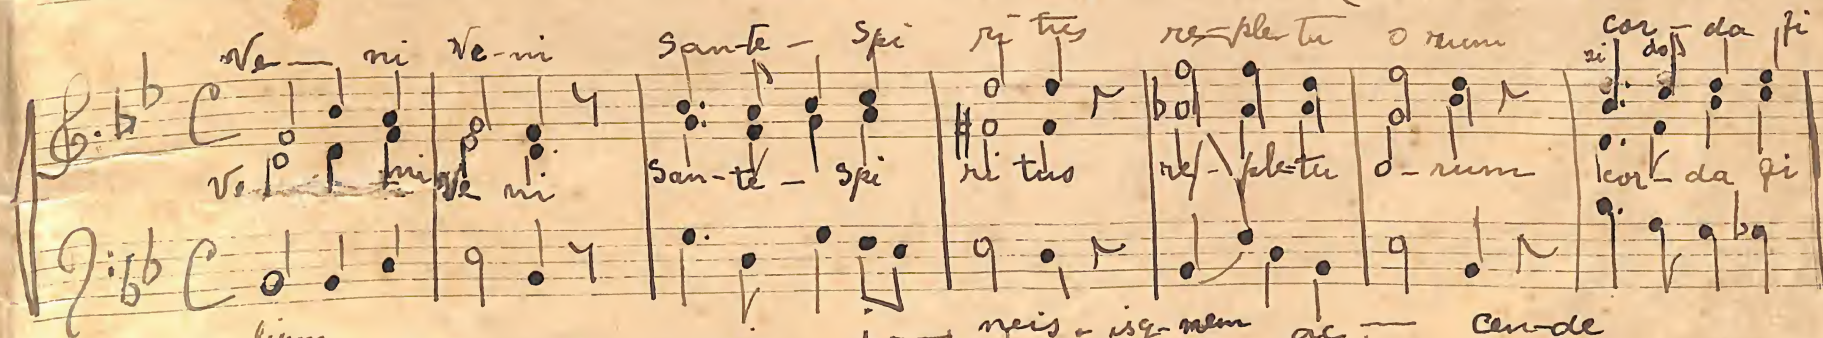 Ve - ni Ve-ni San-te - Spi ri tus re-ple-tu o rum cor - da fi
Ve ni Ve ni San-te - Spi ri tus re - ple-tu o - rum cor - da fi
neis - isq-mem ac - cen-de